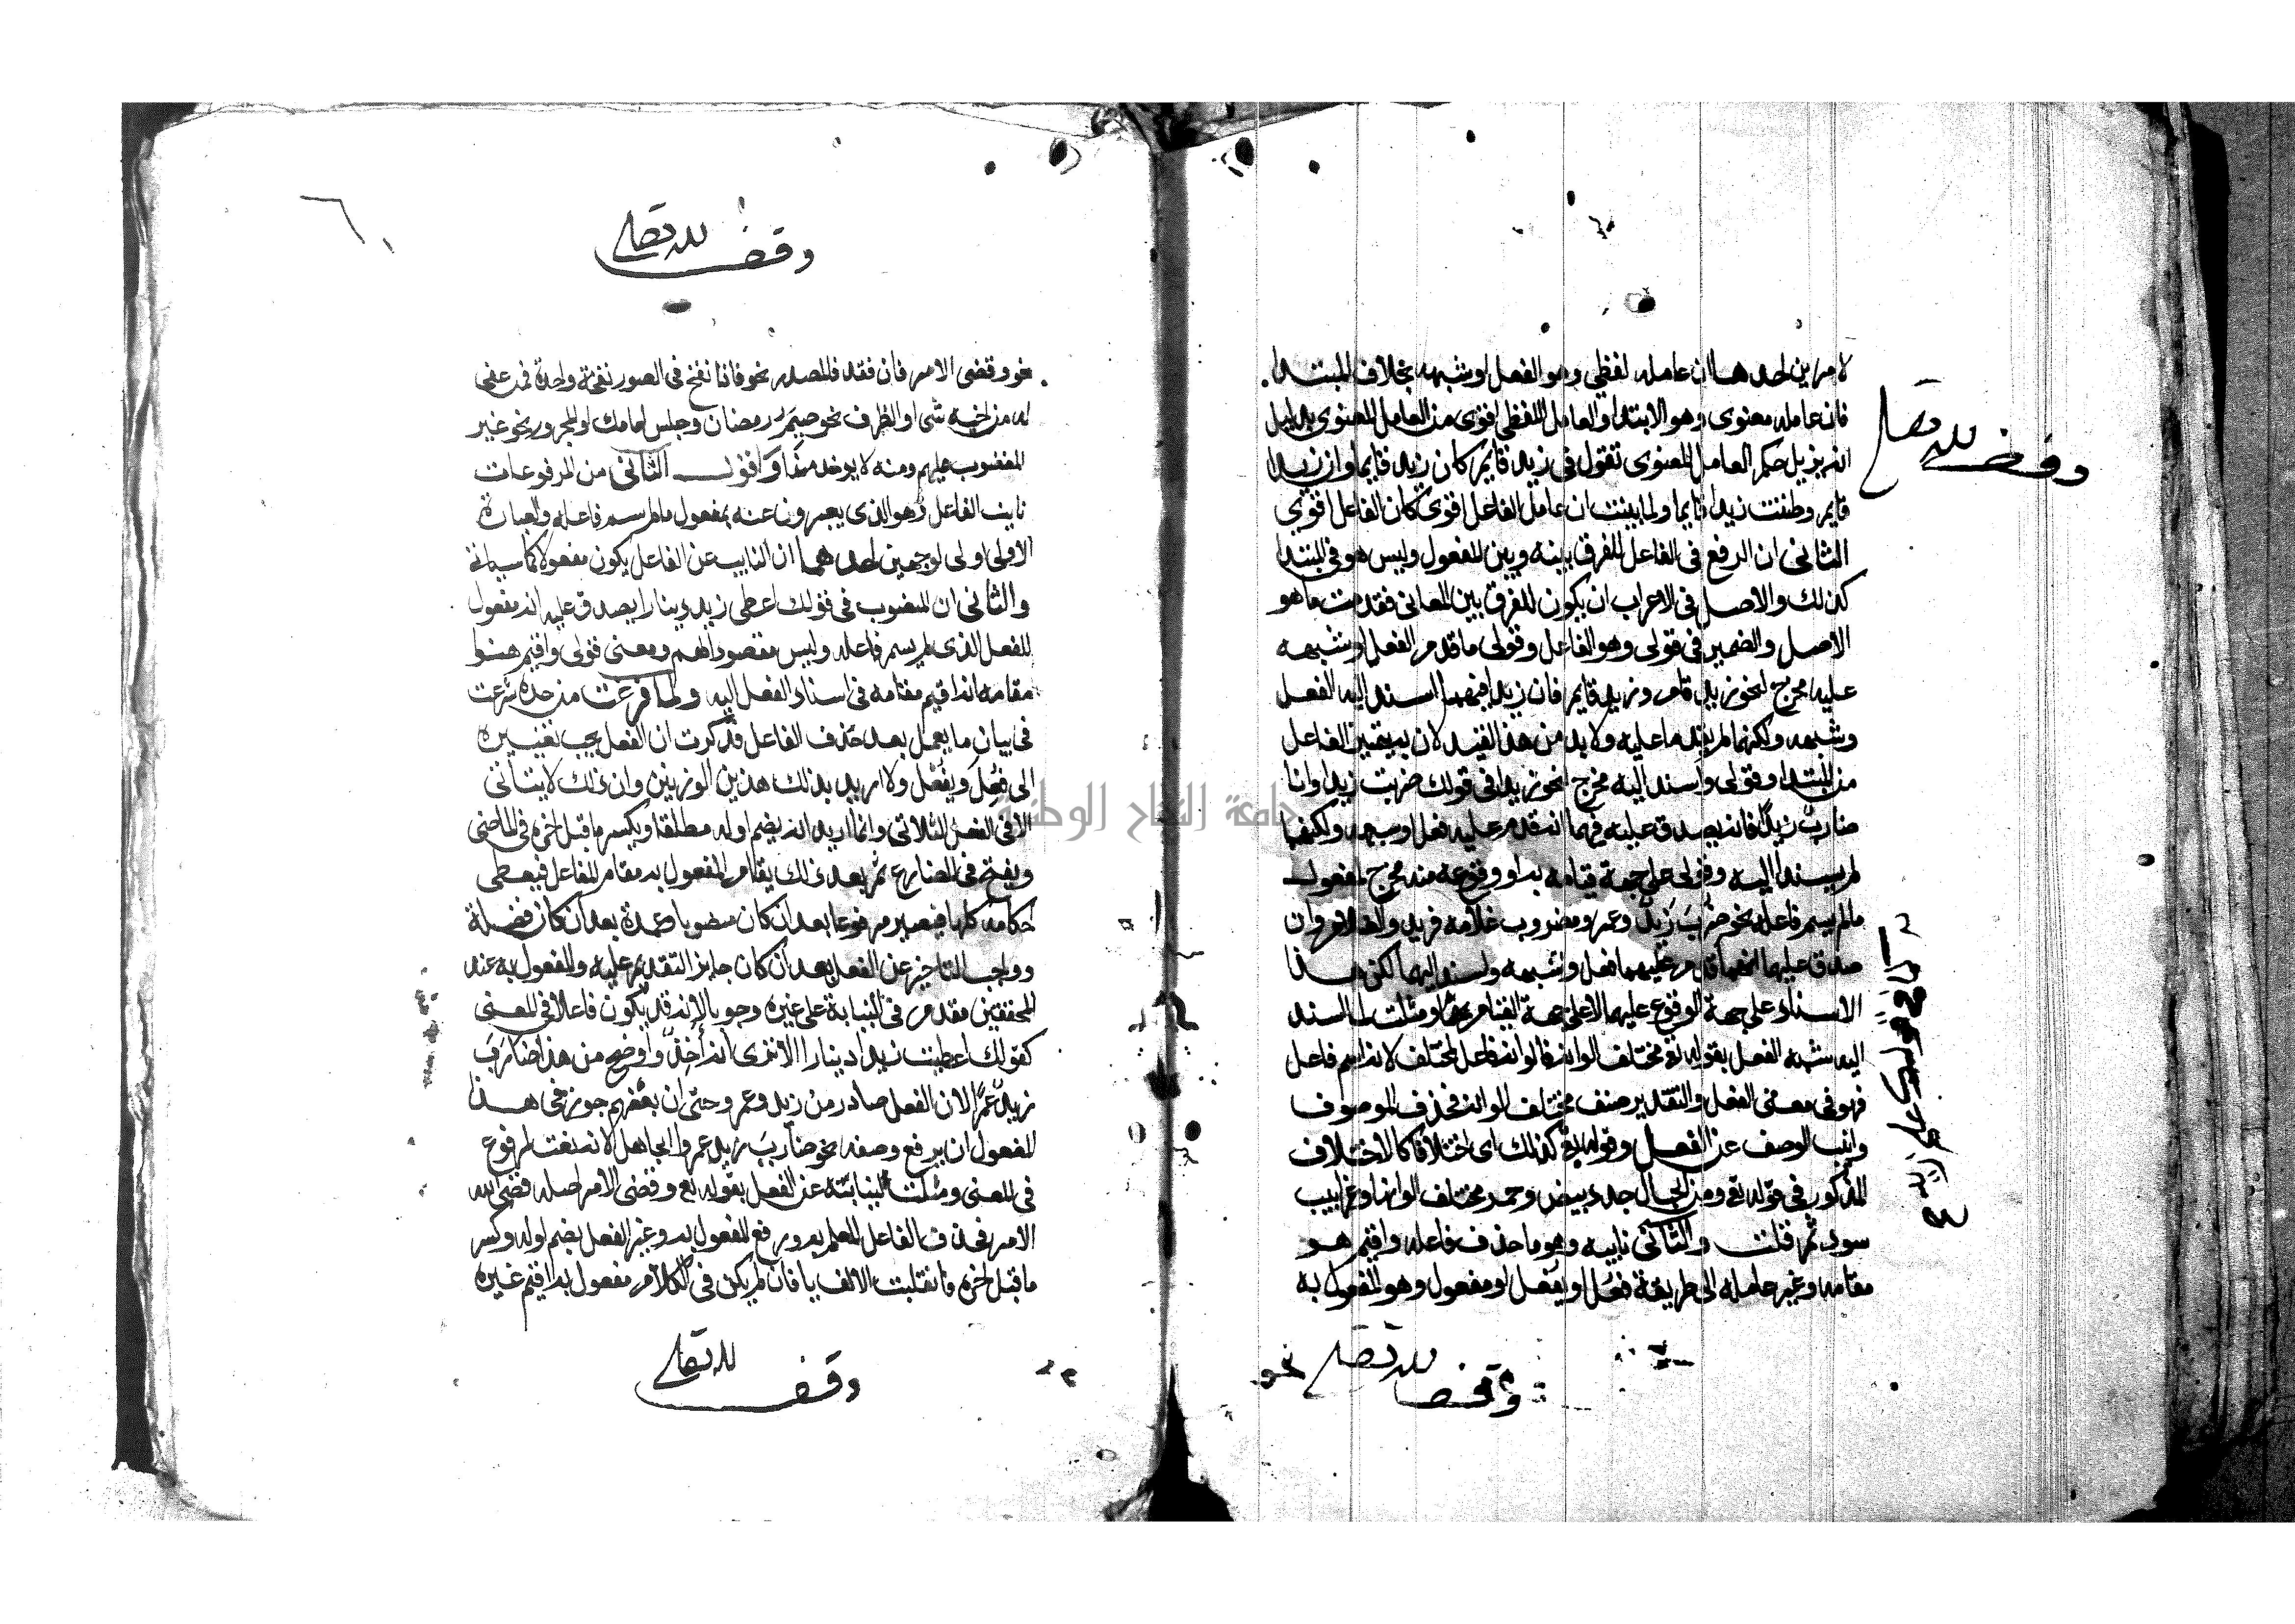 لامرين احدهما ان عامله لفظي وهو الفعل او شبهه بخلاف المبتدا
فان عامله معنوى وهو الابتدا والعامل اللفظي اقوى من العامل المعنوى بدليل
انه يزيل حكم العامل المعنوى تقول في زيد قايم كان زيد قايما وان زيدا
قايم وظننت زيدا قايما ولما بينت ان عامل الفاعل اقوى كان الفاعل اقوى
الثانى ان الرفع فى الفاعل للفرق بينه وبين المفعول وليس هو فى المبتدا
كذلك والاصل فى الاعراب ان يكون للفرق بين المعانى فقدمت ما هو
الاصل والضمير فى قولى وهو الفاعل وقولى ما قدم الفعل او شبهه
عليه مخرج لنحو زيد قام وزيد قايم فان زيدا فيهما اسند اليه الفعل
وشبهه ولكنهما لم يقدما عليه ولا بد من هذا القيد لان به يتميز الفاعل
من المبتدا وقولى واسند اليه مخرج لنحو زيدا فى قولك ضربت زيدا وانا
ضارب زيدا فانه يصدق عليه فيهما انه قدم عليه فعل او شبهه ولكنهما
لم يسندا اليه وقولى على جهة قيامه به او وقوعه منه مخرج لمفعول
ما لم يسم فاعله نحو ضرب زيد وعمرو مضروب غلامه فزيد والغلام وان
صدق عليهما انهما قدم عليهما فعل وشبهه واسند اليهما لكن هذا
الاسناد على جهة الوقوع عليهما لا على جهة القيام بهما ومثلت لما اسند
اليه شبه الفعل بقوله تع مختلف الوانه فالوانه فاعل لمختلف لانه اسم فاعل
فهو فى معنى الفعل والتقدير صنف مختلف الوانه فحذف الموصوف
وانيب الوصف عن الفعل وقوله تع كذلك اى اختلافا كالاختلاف
المذكور فى قوله تع ومن الجبال جدد بيض وحمر مختلف الوانها وغرابيب
سود ثم قلت والثانى نايبه وهو ما حذف فاعله واقيم هو
مقامه وغير عامله الى طريقة فعل ويفعل او مفعول وهو المفعول به
نحو
وقف لله تعالى
وقف لله تعالى
وقف لله تعالى
نحو وقضى الامر فان فقد فالمصدر نحو فاذا نفخ فى الصور نفخة واحدة فمن عفى
له من اخيه شى او الظرف نحو صيم رمضان وجلس امامك او المجرور نحو غير
المغضوب عليهم ومنه لا يوخذ منها واقول الثانى من المرفوعات
نايب الفاعل وهو الذى يعبرون عنه بمفعول ما لم يسم فاعله والعبارة
الاولى اولى لوجهين احدهما ان النايب عن الفاعل يكون مفعولا كما سياتى
والثانى ان المنصوب فى قولك اعطى زيد دينارا يصدق عليه انه مفعول
للفعل الذى لم يسم فاعله وليس مقصودا لهم ومعنى قولى واقيم هو
مقامه انه اقيم مقامه فى اسناد الفعل اليه ولما فرغت من حده شرعت
فى بيان ما يعمل بعد حذف الفاعل فذكرت ان الفعل يجب تغييره
الى فعل ويفعل ولا اريد بذلك هذين الوزنين وان ذلك لا يتاتى
الا فى الفعل الثلاثى وانما اريد انه يضم اوله مطلقا ويكسر ما قبل اخره فى الماضى
ويفتح فى المضارع ثم بعد ذلك يقام المفعول به مقام الفاعل فيعطى
احكامه كلها فيصير مرفوعا بعد ان كان منصوبا وعمدة بعد ان كان فضلة
وواجب التاخير عن الفعل بعد ان كان جايز التقديم عليه والمفعول به عند
المحققين مقدم فى النيابة على غيره وجوبا لانه قد يكون فاعلا فى المعنى
كقولك اعطيت زيدا دينارا الا ترى انه اخذ واوضح من هذا ضارب
زيد عمرا لان الفعل صادر من زيد وعمرو حتى ان بعضهم جوز فى هذا
المفعول ان يرفع وصفه نحو ضارب زيد عمرا الجاهل لانه نعت لمرفوع
فى المعنى ومثلت لنيابته عن الفعل بقوله تع وقضى الامر اصله قضى الله
الامر فحذف الفاعل للعلم به ورفع المفعول به وغير الفعل بضم اوله وكسر
ما قبل اخره وانقلبت الالف يا فان لم يكن فى الكلام مفعول به اقيم غيره
وقف لله تعالى
جامعة النجاح الوطنية